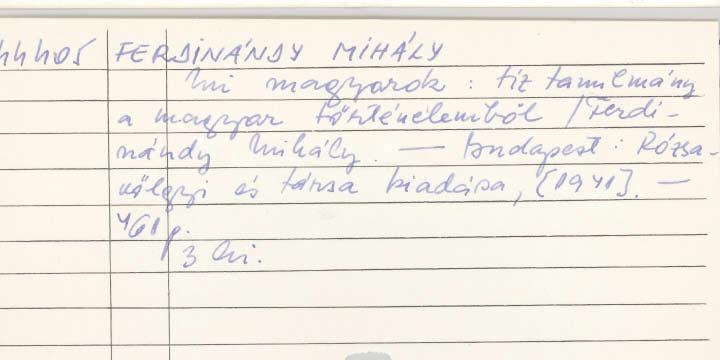 44405 FERDINÁNDY MIHÁLY
Mi magyarok : tíz tanulmány
a magyar történelemből / Ferdi-
nándy Mihály. — Budapest : Rózsa-
völgyi és társa kiadása, [1941]. —
461 p.
3 lvi.